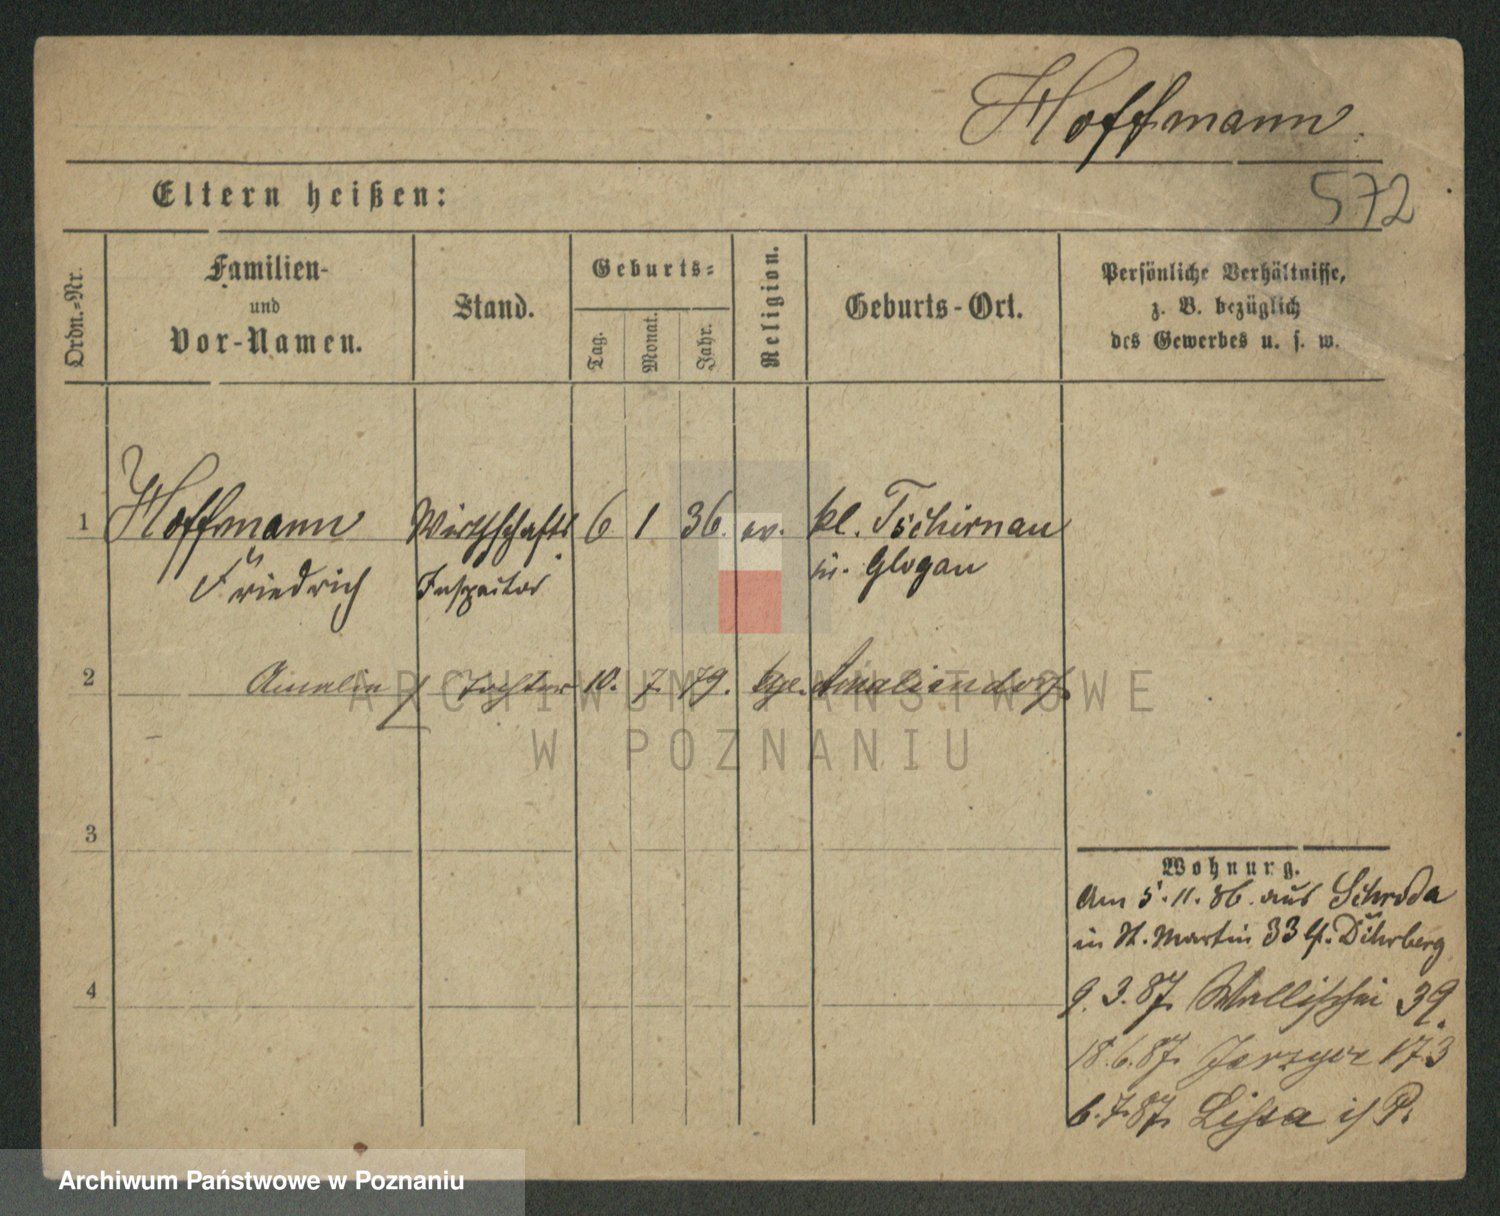 Hoffmann
572
Eltern heißen:
Ordn.-Nr.
Familien-
und
Vor-Namen.
Stand.
Geburts-
Tag.
Monat.
Jahr.
Religion.
Geburts-Ort.
Persönliche Verhältnisse,
z. B. bezüglich
des Gewerbes u. s. w.
1 Hoffmann Wirthschafts 6 1 36. ev. kl. Tschirnau
Friedrich Inspector Glogau
2 Amalie Tochter 10. 7. 79. Amaliendorf
3
4
Wohnung.
Am 5.11.86. aus Schroda
in St. Martin 33 Dührberg
9.3.87. Wallischei 39.
18.6.87. Jerzyce 173
6.7.87. Lissa i/P.
ARCHIWUM PAŃSTWOWE
W POZNANIU
Archiwum Państwowe w Poznaniu